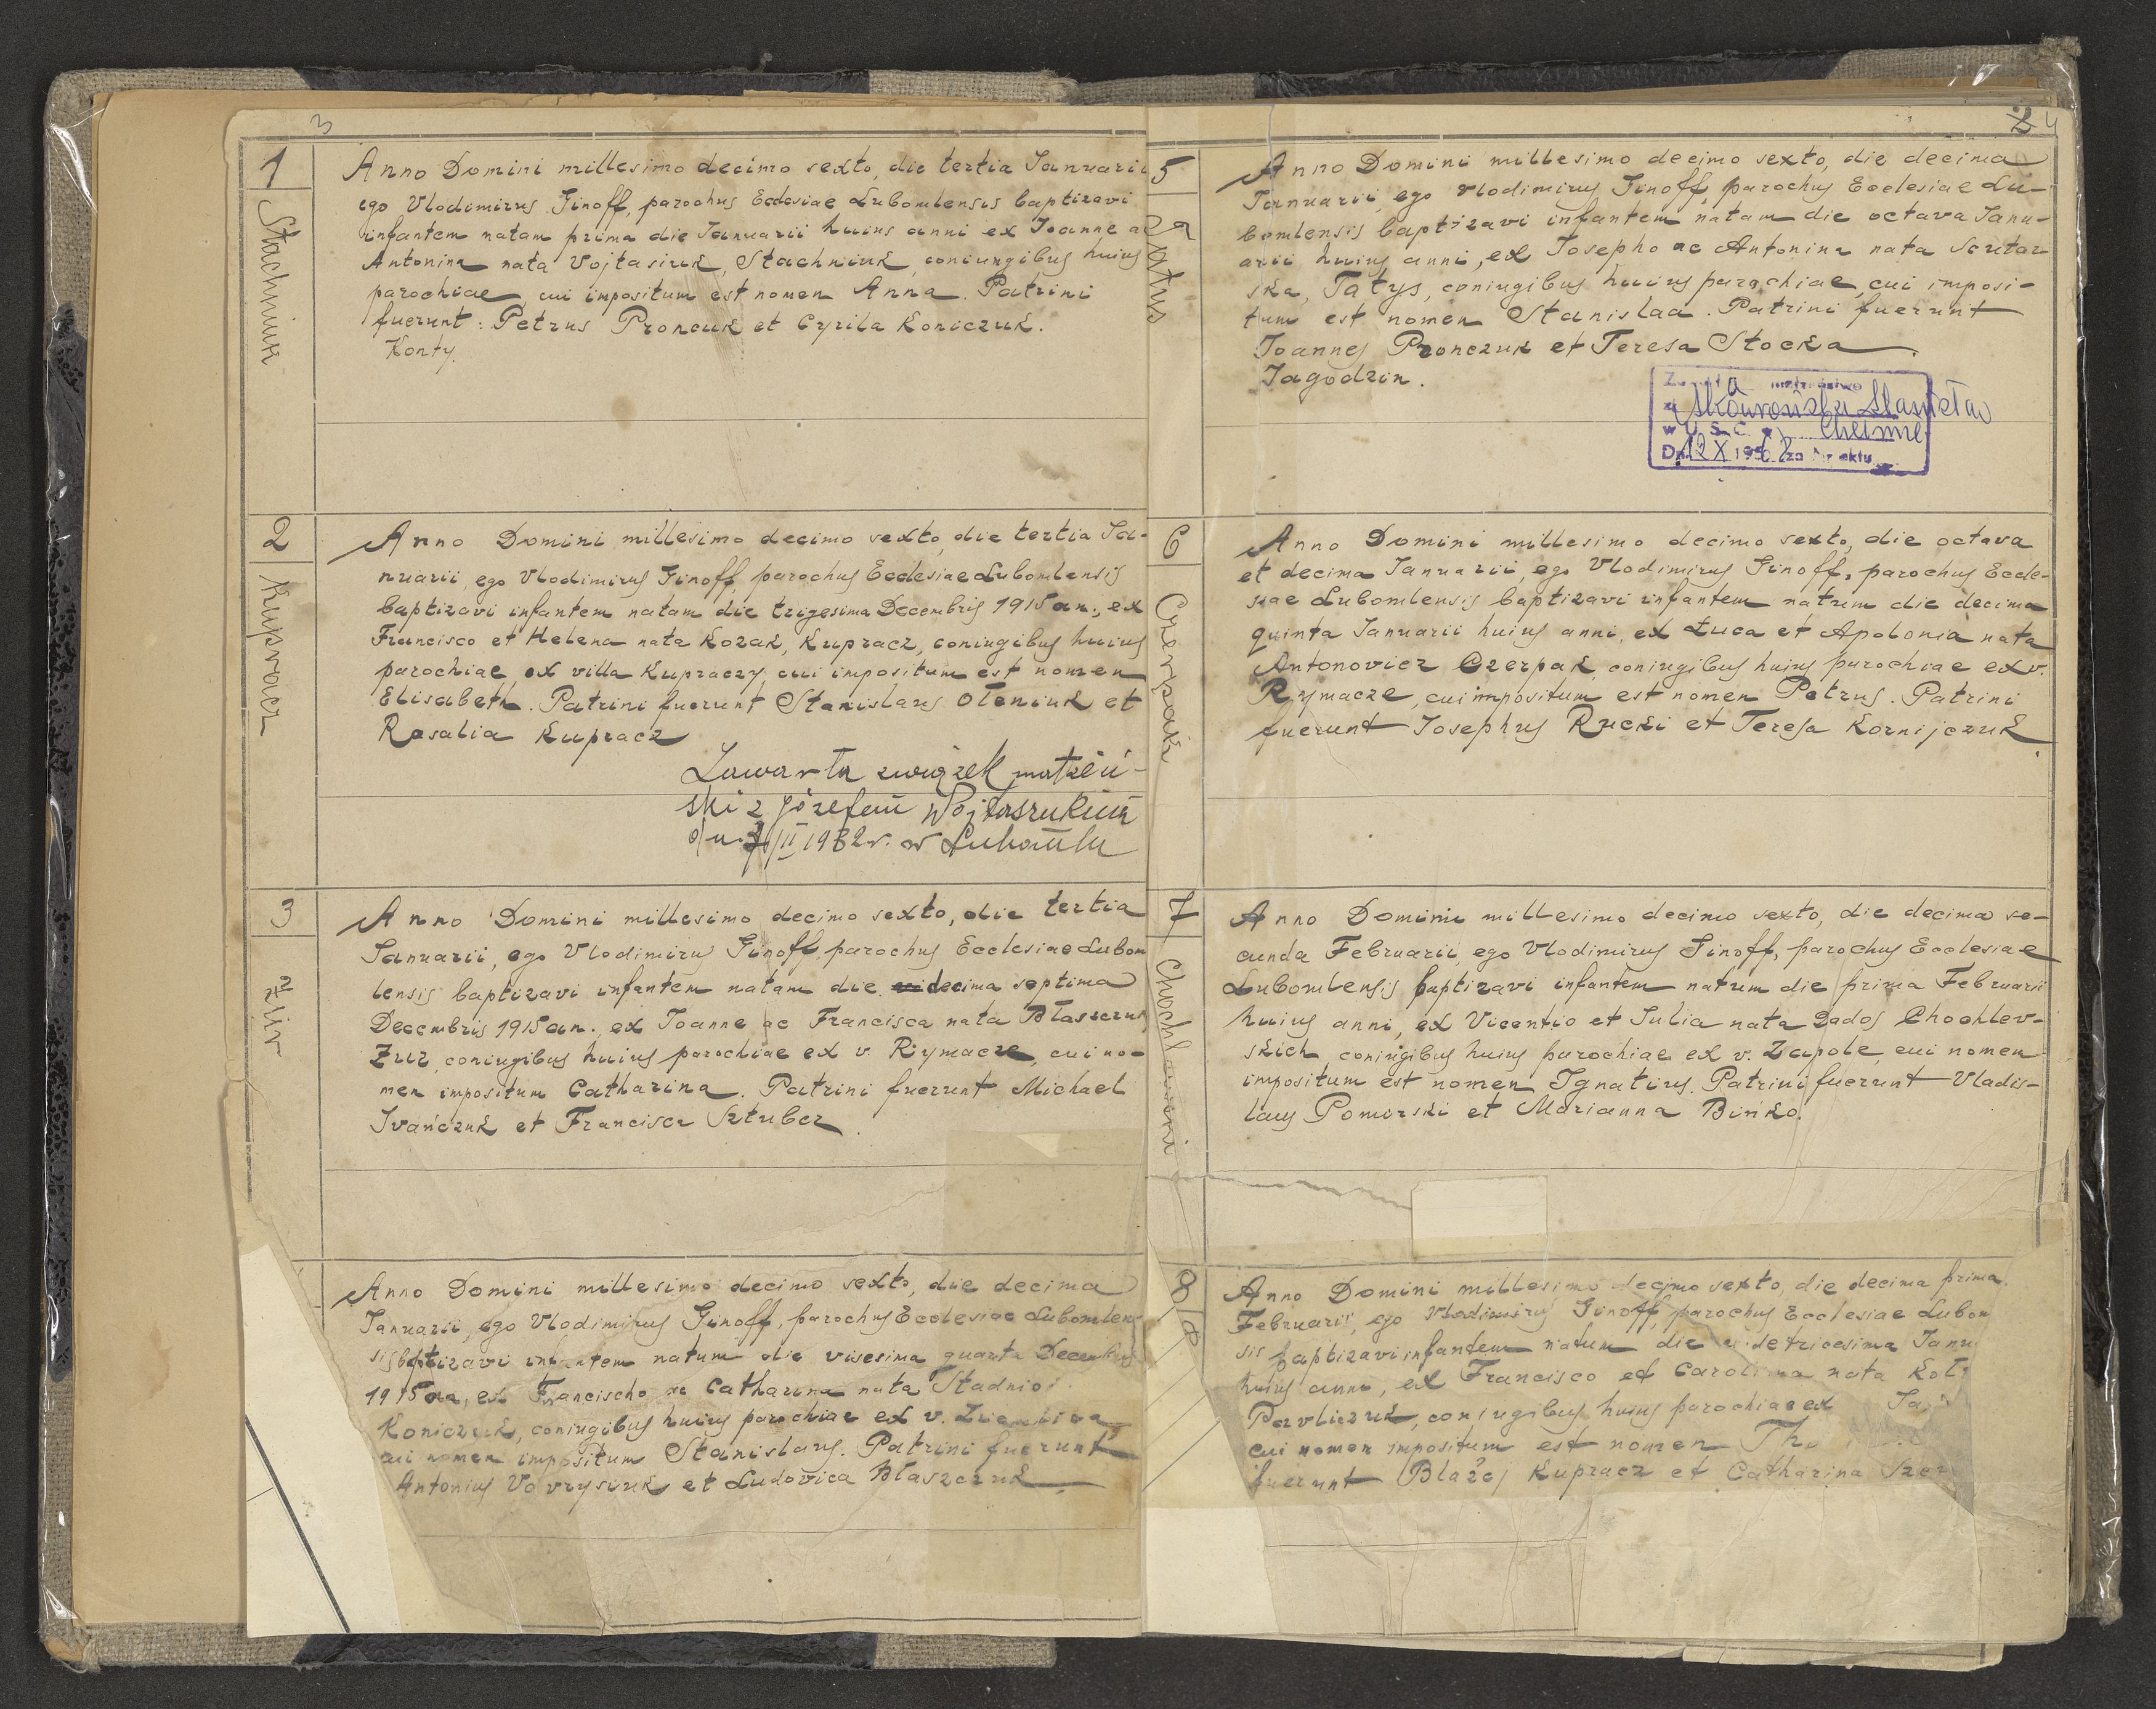 3
1
Stachniuk
Anno Domini millesimo decimo sexto, die tertia Januarii
ego Vlodimirus Jinoff, parochus Ecclesiae Lubomlensis baptizavi
infantem natam prima die Januarii huius anni ex Joanne ac
Antonina nata Vojtasiuk, Stachniuk, coniungibus huius
parochiae, cui impositum est nomen Anna. Patrini
fuerunt: Petrus Proncuk et Cyrila Koniczuk.
Korty.
2
Kupracz
Anno Domini millesimo decimo sexto, die tertia Ja-
nuarii, ego Vlodimirus Jinoff, parochus Ecclesiae Lubomlensis
baptizavi infantem natam die trigesima Decembris 1915 an., ex
Francisco et Helena nata Kozak, Kupracz, coniugibus huius
parochiae, ex villa Kupraczy, cui impositum est nomen
Elisabeth. Patrini fuerunt Stanislaus Oleniuk et
Rosalia Kupracz
Zawarła związek małżeń-
ski z Józefem Wojtaszukiem
II 1932 r. w Lubomlu
3
Żur
Anno Domini millesimo decimo sexto, die tertia
Januarii, ego Vlodimirus Jinoff, parochus Ecclesiae Lubom
lensis baptizavi infantem natam die decima septima
Decembris 1915 an. ex Joanne ac Francisca nata Błaszczuk
Żur, coniugibus huius parochiae ex v. Rymacze, cui no-
men impositum Catharina. Patrini fuerunt Michael
Ivańczuk et Francisca Sztuber
Anno Domini millesimo decimo sexto, die decima
Januarii, ego Vlodimirus Jinoff, parochus Ecclesiae Lubomlen-
sis baptizavi infantem natum die visesima quarta Decembris
1915 an, ex Francischo ac Catharina nata
Koniczuk, coniugibus huius parochiae ex v.
cui nomen impositum Stanislaus. Patrini fuerunt
Antonius Vavrysiuk et Ludovica Błaszczuk
2 4
5
Tatys
Anno Domini millesimo decimo sexto, die decima
Januarii, ego Vlodimirus Jinoff, parochus Ecclesiae Lu-
bomlensis baptizavi infantem natam die octava Janu-
arii huius anni, ex Josepho ac Antonina nata Scutar
ska, Tatys, coniugibus huius parochiae, cui imposi-
tum est nomen Stanislaa. Patrini fuerunt
Joannes Pronczuk et Teresa Stocka.
Jagodzin.
małżeństwo
w U. S. C. w Chełmie
Dn. 12 X 19 za Nr aktu
6
Czerpak
Anno Domini millesimo decimo sexto, die octava
et decima Januarii, ego Vlodimirus Jinoff, parochus Eccle-
siae Lubomlensis baptizavi infantem natum die decima
quinta Januarii huius anni, ex Luca et Apolonia nata
Antonovicz Czerpak, coniugibus huius parochiae ex v.
Rymacze, cui impositum est nomen Petrus. Patrini
fuerunt Josephus Rucki et Teresa Kornijczuk
7
Anno Domini millesimo decimo sexto, die decima se-
cunda Februarii, ego Vlodimirus Jinoff, parochus Ecclesiae
Lubomlensis baptizavi infantem natum die prima Februarii
huius anni, ex Vicentio et Julia nata Dados Chochlev-
skich, coniugibus huius parochiae ex v. Zapole, cui nomen
impositum est nomen Ignatius. Patrini fuerunt Vladis-
laus Pomorski et Marianna Bińko.
8
Anno Domini millesimo decimo sexto, die decima prima
Februarii, ego Vlodimirus Jinoff, parochus Ecclesiae Lubom
sis baptizavi infantem natum die tricesima Janu
huius anni, ex Francisco et Carolina nata
Pavliczuk, coniugibus huius parochiae ex
cui nomen impositum est nomen
fuerunt Błażej Kupracz et Catharina